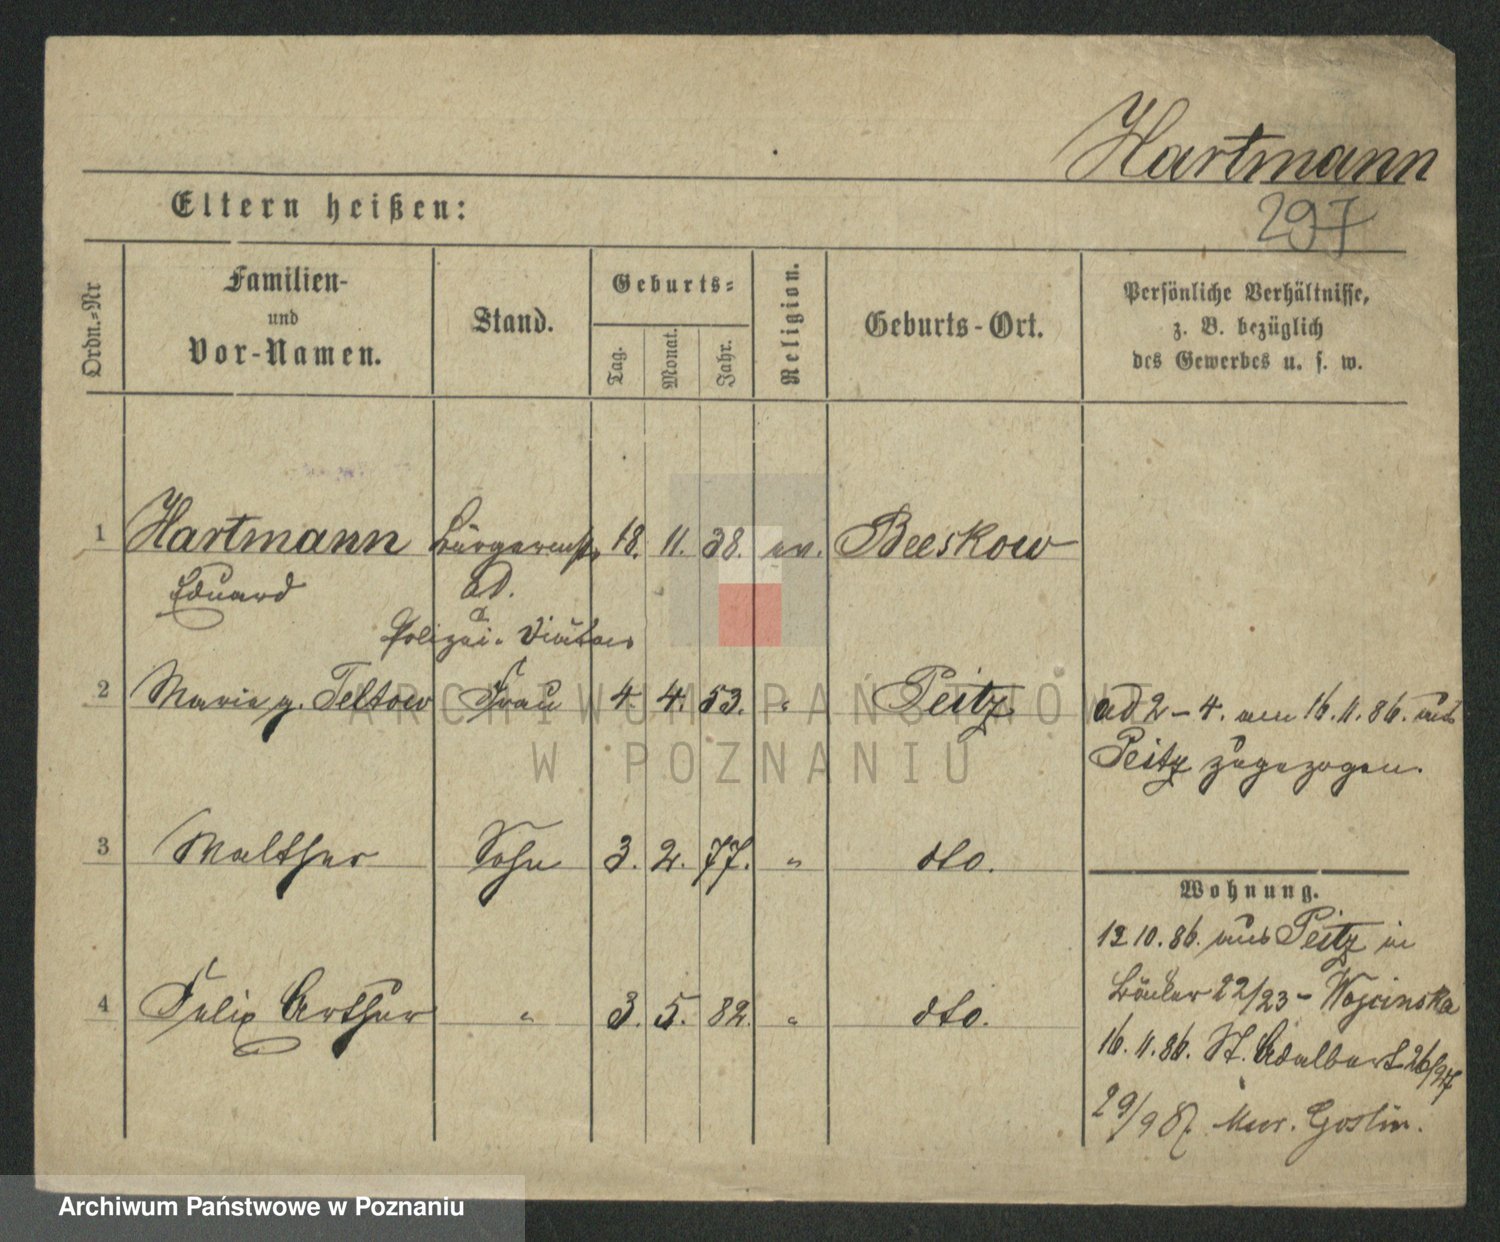 Hartmann
297
Eltern heißen:
Ordn.-Nr
Familien-
und
Vor-Namen.
Stand.
Geburts-
Tag.
Monat.
Jahr.
Religion.
Geburts-Ort.
Persönliche Verhältnisse,
z. B. bezüglich
des Gewerbes u. s. w.
1 Hartmann Bürgermstr 18. 11. 38. ev. Beeskow
Eduard aD.
Polizei-
2 Marie g. Teltow Frau 4. 4. 53. " Peitz
ad 2-4. am 16.11.86. aus
Peitz zugezogen.
3 Walther Sohn 3. 2. 77. " dto.
4 Felix Arthur " 3. 5. 82. " dto.
Wohnung.
12 10. 86. aus Peitz in
22/23 - Wojcinska
16. 11. 86. St. Adalbert 26/27
29/9 87 Mur. Goslin.
ARCHIWUM PAŃSTWOWE
W POZNANIU
Archiwum Państwowe w Poznaniu